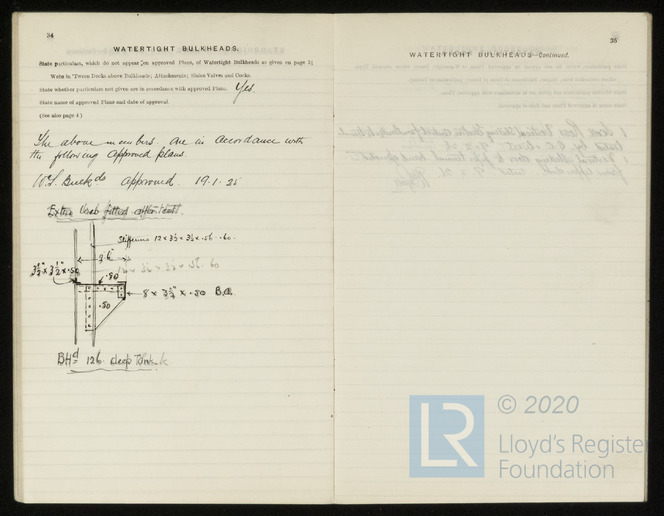 34
WATERTIGHT BULKHEADS.
State particulars, which do not appear on approved Plans, of Watertight Bulkheads as given on page 3;
Webs in 'Tween Decks above Bulkheads; Attachments; Sluice Valves and Cocks.
State whether particulars not given are in accordance with approved Plans. Yes.
State name of approved Plans and date of approval.
(See also page 4)
The above members are in accordance with
the following approved plans.
W.T. Bulkds approved. 19.1.25
Extra Web fitted
Stiffeners 12 x 3½ x 3½ x .56 .60
2'6"
3½" x 3½" x .50
.80
8 x 3½" x .50 B.A.
.50
BHd 126 deep tank
35
WATERTIGHT BULKHEADS—Continued.
LR
© 2020
Lloyd's Register
Foundation